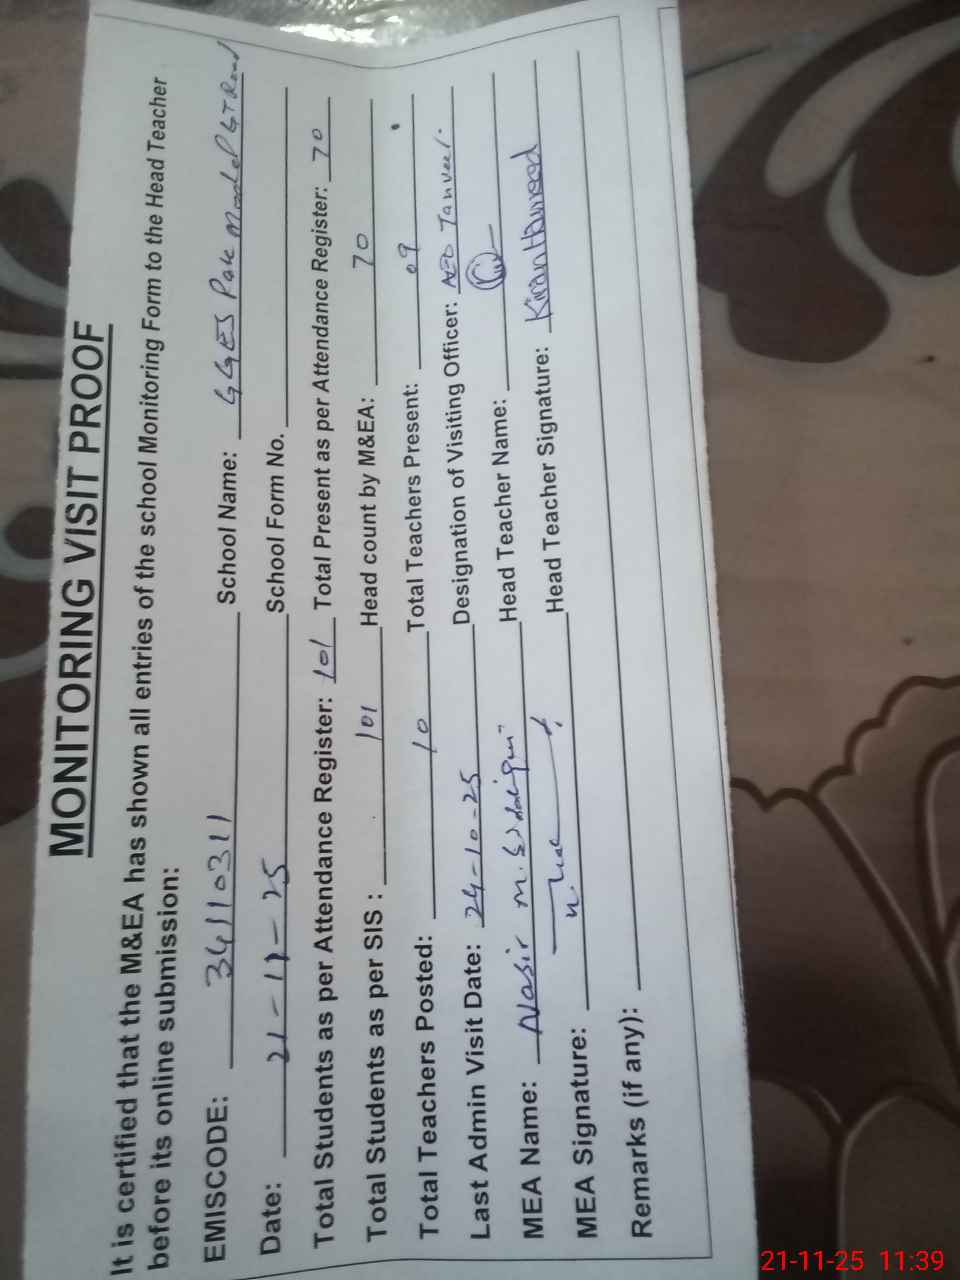 MONITORING VISIT PROOF
It is certified that the M&EA has shown all entries of the school Monitoring Form to the Head Teacher
before its online submission:
EMISCODE: 34110311 School Name: GGES Park Model GT Road
Date: 21-11-25 School Form No.
Total Students as per Attendance Register: 101 Total Present as per Attendance Register: 70
Total Students as per SIS : 101 Head count by M&EA: 70
Total Teachers Posted: 10 Total Teachers Present: 09
Last Admin Visit Date: 24-10-25 Designation of Visiting Officer: AEO Tanveer.
MEA Name: Nasir M. Head Teacher Name:
MEA Signature: Head Teacher Signature: Kiran Hameed
Remarks (if any):
21-11-25 11:39